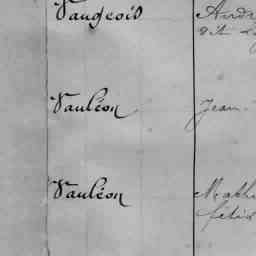 Vaugeois Andr
dit
Vauléon Jean
Vauléon Math
félix